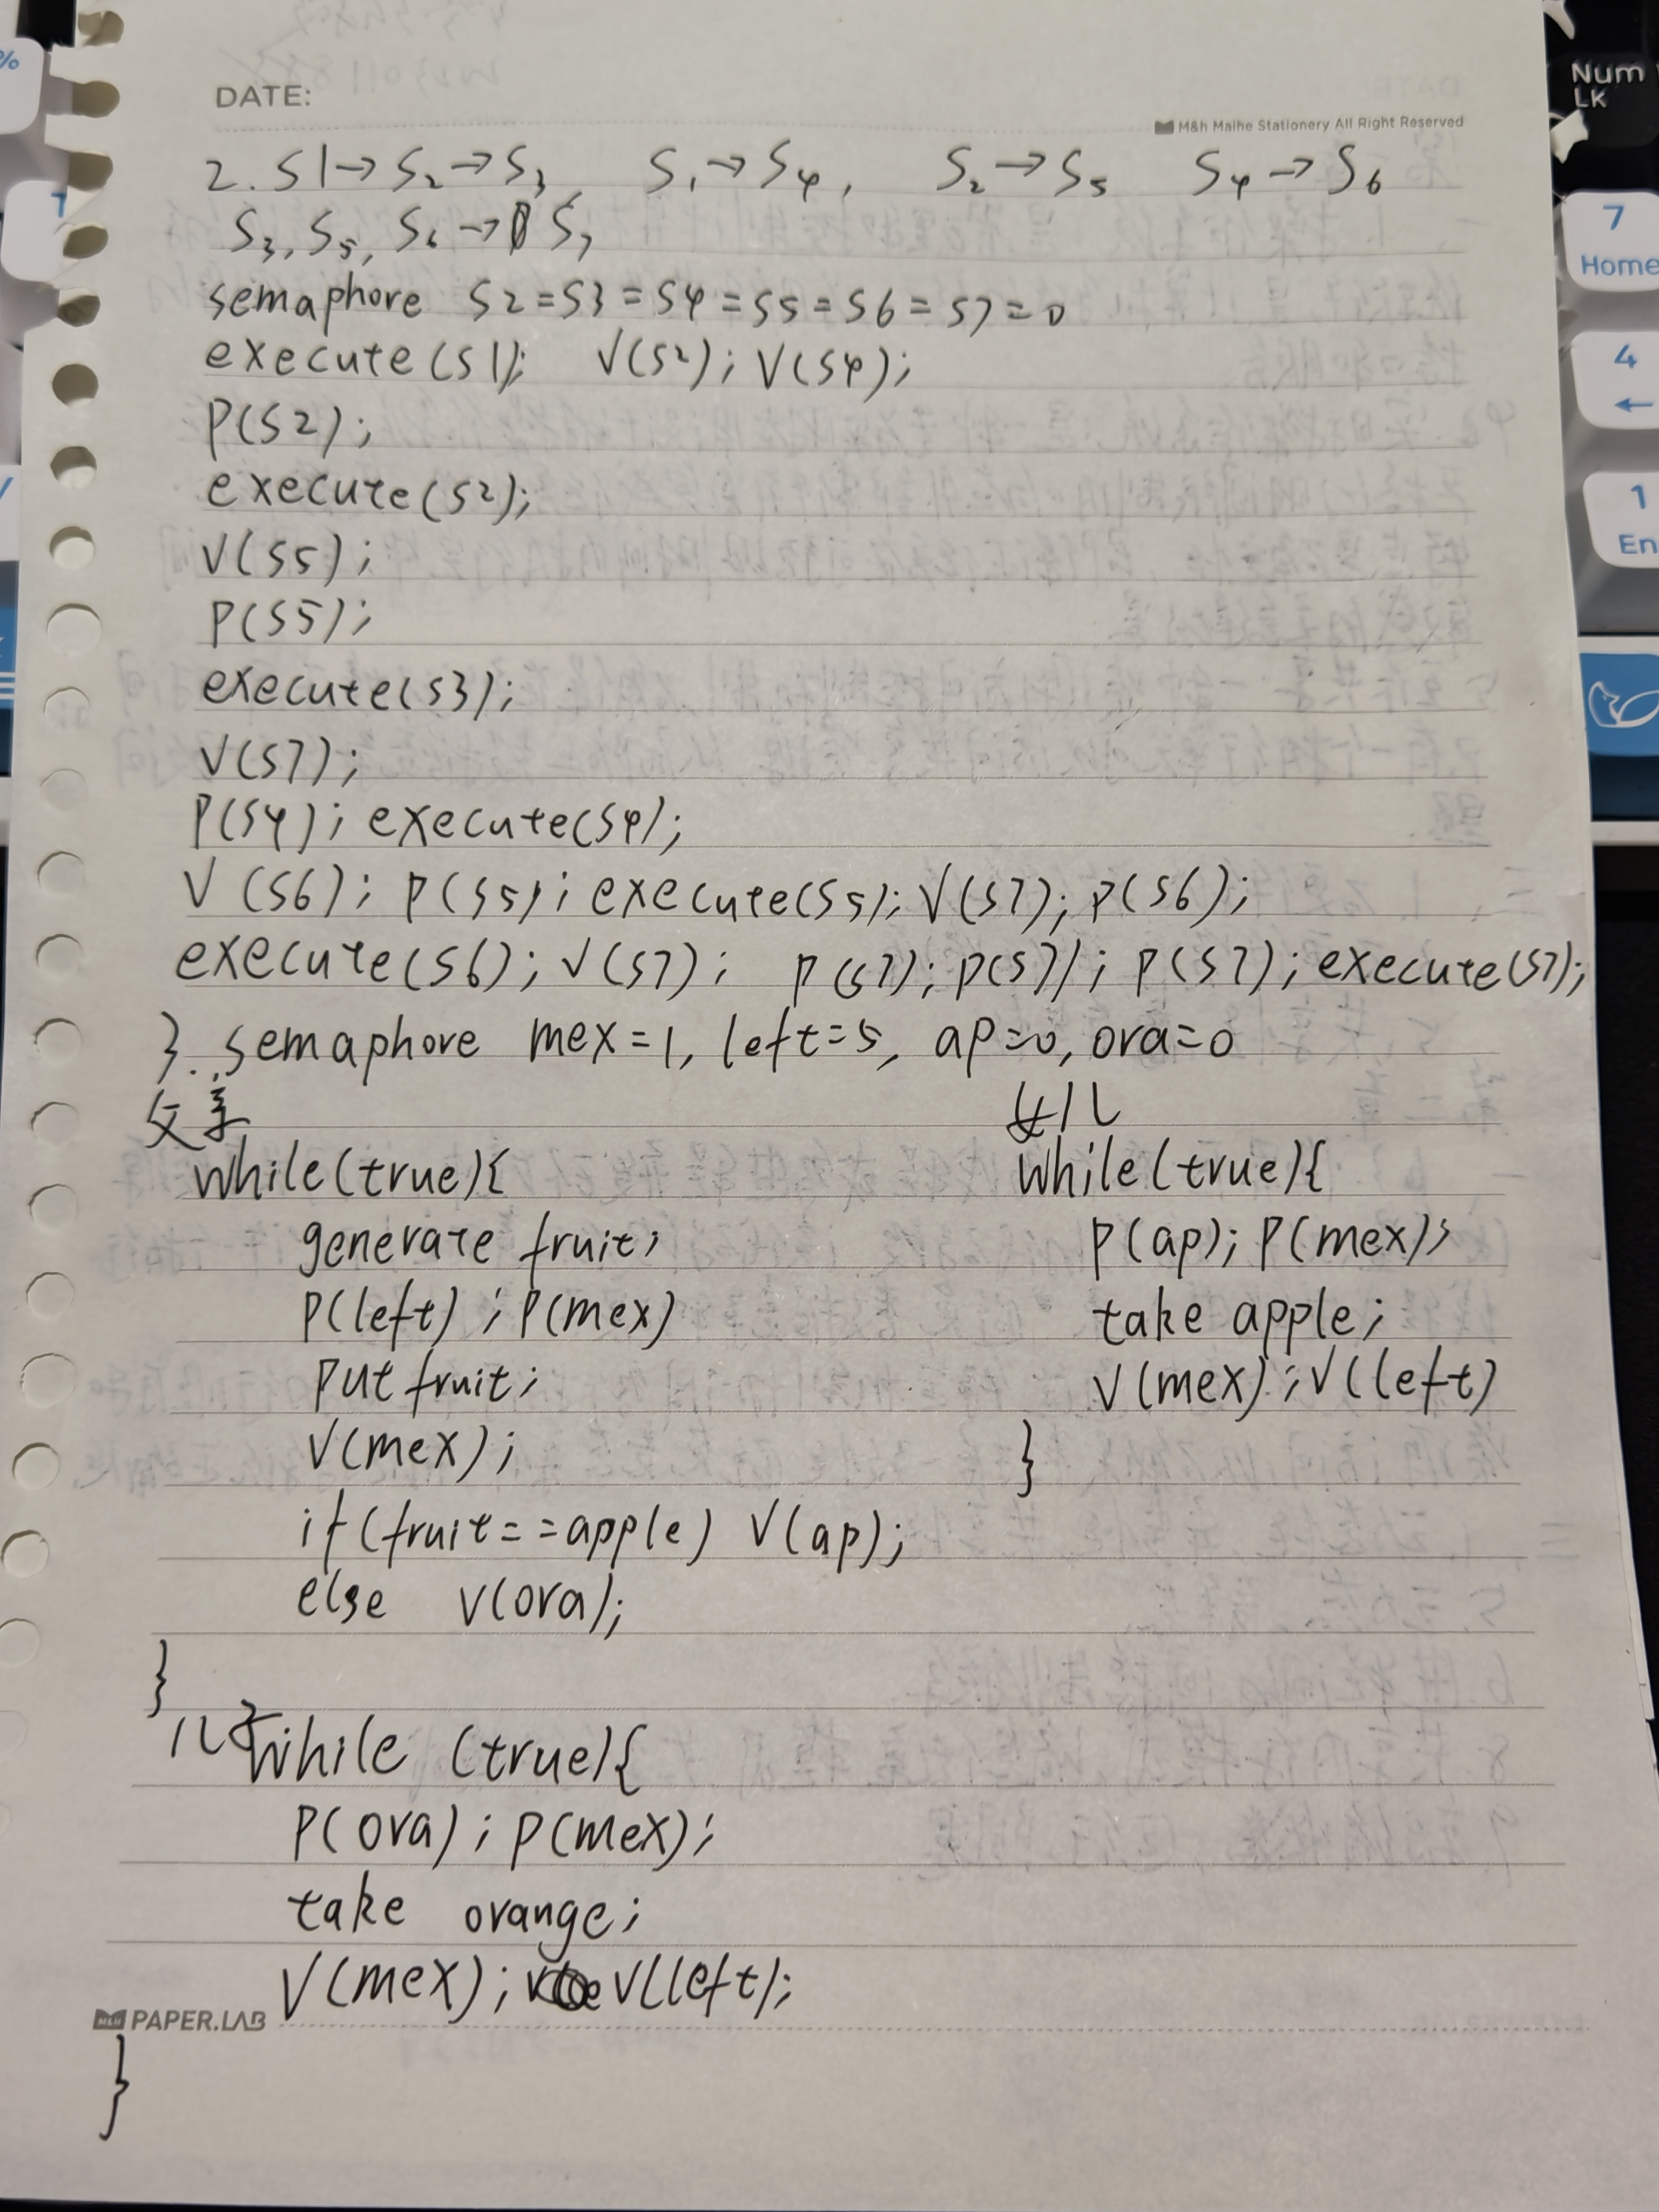 DATE:
M&h Maihe Stationery All Right Reserved
2. S1→S2→S3 S1→S4, S2→S5 S4→S6
S3, S5, S6→S7
semaphore S2=S3=S4=S5=S6=S7=0
execute(S1); V(S2); V(S4);
P(S2);
execute(S2);
V(S5);
P(S5);
execute(S3);
V(S7);
P(S4); execute(S4);
V(S6); P(S5); execute(S5); V(S7); P(S6);
execute(S6); V(S7); P(S7); P(S7); P(S7); execute(S7);
3. semaphore mex=1, left=5, ap=0, ora=0
父亲
while(true){
generate fruit;
P(left); P(mex)
put fruit;
V(mex);
if(fruit==apple) V(ap);
else V(ora);
}
女儿
while(true){
P(ap); P(mex);
take apple;
V(mex); V(left)
}
儿子 while (true){
P(ora); P(mex);
take orange;
V(mex); V(left);
PAPER.LAB
}
Num
LK
7
Home
4
←
1
En
%